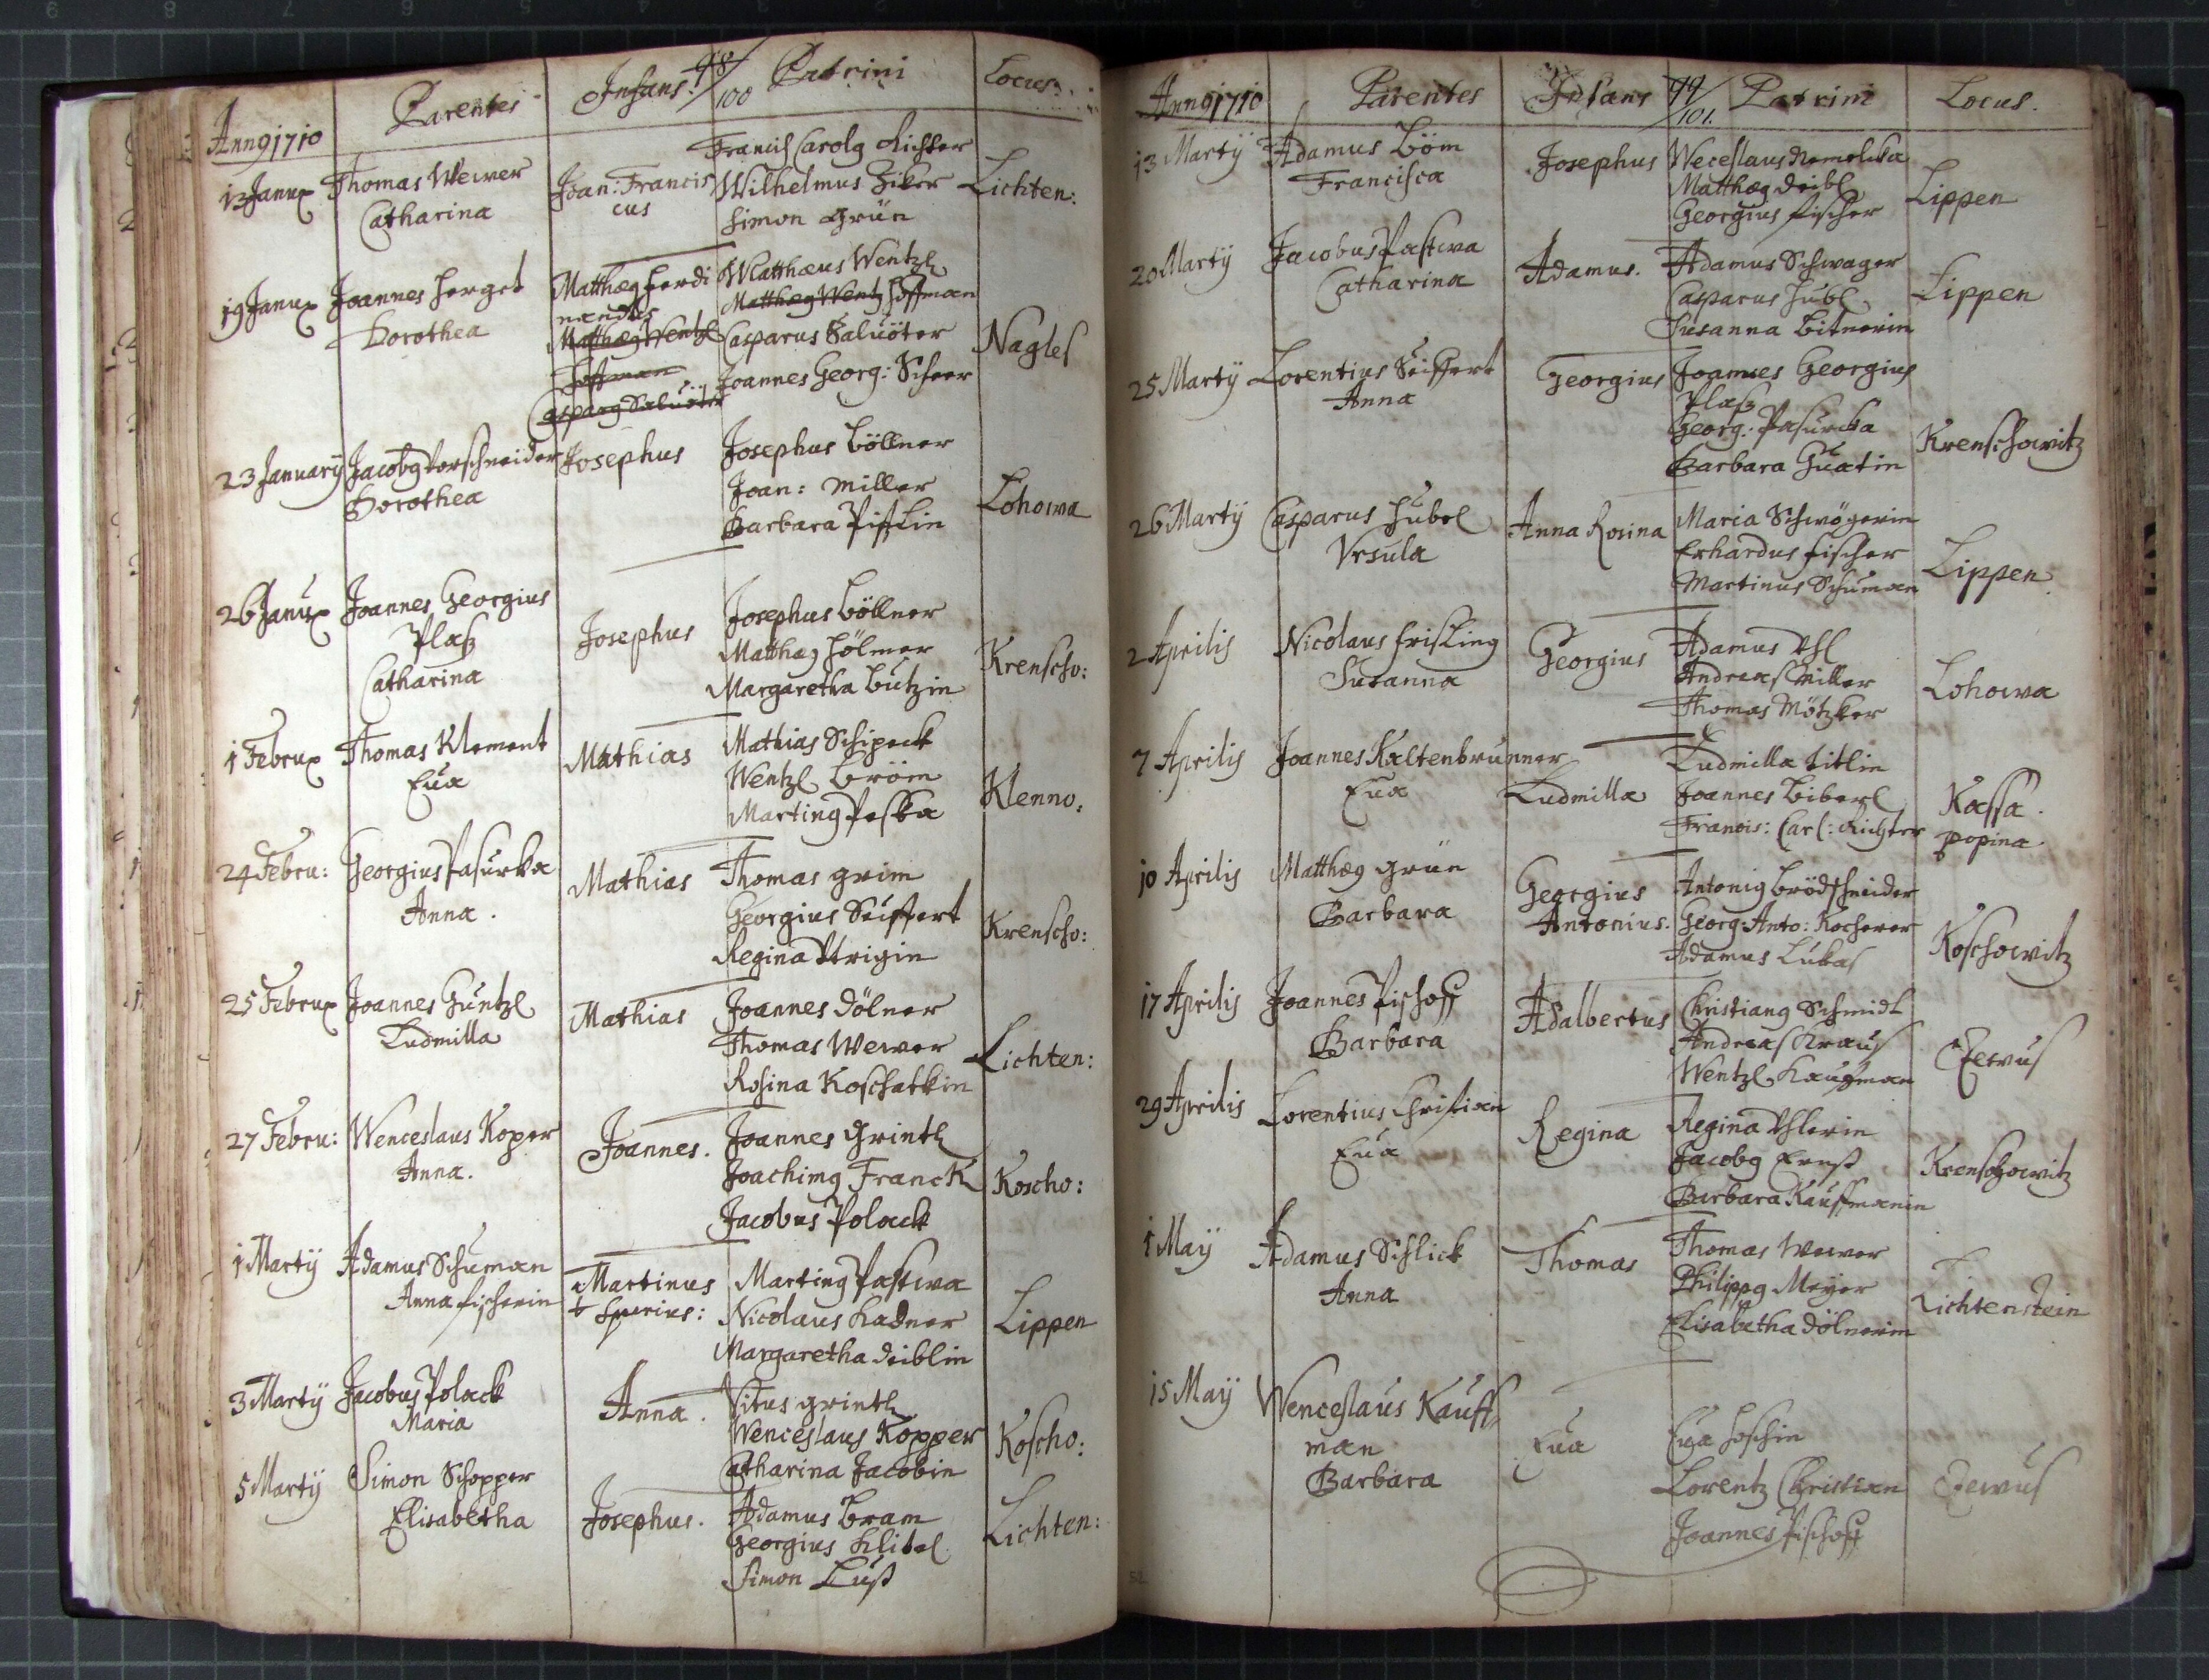 98/100
Anno 1710
Parentes
Infans
Patrini
Locus
13 Janu
Thomas Wewer
Catharina
Joan: Francis
cus
Francis Carolg Richter
Wilhelmus
Simon Grün
Lichten:
19 Janu
Joannes Herget
Dorothea
Matthæg Ferdi
nandus
Matthæg Wentzl
Hoffman
Casparg Saluöter
Matthæus Wentzl
Matthæg Wentz Hoffman
Casparus Saluöter
Joannes Georg: Scheer
Nagles
23 January
Jacobg Vorschneider
Dorothea
Josephus
Josephus Böllner
Joan: Miller
Barbara
Lohowa
26 Janu
Joannes Georgius
Plass
Catharina
Josephus
Josephus Böllner
Matthæg Hölmer
Margaretha Butzin
Krenscho:
1 Febru
Thomas Klement
Eua
Mathias
Mathias Schipeck
Wentzl Bröm
Marting Peska
Klenno:
24 Febru:
Georgius Pasurka
Anna.
Mathias
Thomas Grim
Georgius Seiffert
Regina
Krenscho:
25 Febru
Joannes Guntzl
Ludmilla
Mathias
Joannes Dölner
Thomas Wewer
Rosina Koschatkin
Lichten:
27 Febru:
Wenceslaus Koper
Anna.
Joannes.
Joannes Grintl
Joachimg Franck
Jacobus Polack
Koscho:
1 Martij
Adamus Schuman
Anna Fischerin
Martinus
Spurius:
Marting Pastwa
Nicolaus Kadner
Margaretha Deiblin
Lippen
3 Martij
Jacobus Polack
Maria
Anna.
Vitus Grintl
Wenceslaus Kopper
Catharina Jacobin
Koscho:
5 Martij
Simon Schopper
Elisabetha
Josephus.
Adamus Bram
Georgius Klitel
Simon Lust
Lichten:
99/101.
Anno 1710
Parentes
Infans
Patrini
Locus.
13 Martij
Adamus Böm
Francisca
Josephus
Weceslaus
Matthæg Deibl
Georgius Fischer
Lippen
20 Martij
Jacobus Pastwa
Catharina
Adamus.
Adamus Schwager
Casparus Hubl
Susanna Bitnerin
Lippen
25 Martij
Lorentius Seiffert
Anna
Georgius
Joannes Georgius
Plass
Georg: Pasurcka
Barbara Guatin
Krenschowitz
26 Martij
Casparus Hubel
Vrsula
Anna Rosina
Maria Schwögerin
Erhardus Fischer
Martinus Schuman
Lippen
2 Aprilis
Nicolaus Frisling
Susanna
Georgius
Adamus
Andreas Miller
Thomas Mötzker
Lohowa
7 Aprilis
Joannes Kaltenbrunner
Eua
Ludmilla
Ludmilla Titlin
Joannes Biberl
Francis: Carl: Richter
Kassa.
popina
10 Aprilis
Matthæg Grün
Barbara
Georgius
Antonius.
Antonig Brödschneider
Georg: Anto: Kocherer
Adamus Lukas
Koschowitz
17 Aprilis
Joannes Pischoff
Barbara
Adalbertus
Christiang Schmidt
Andreas Kraus
Wentzl Kauffman
Zewus
29 Aprilis
Lorentius Christian
Eua
Regina
Regina
Jacobg Ernst
Barbara Kauffmanin
Krenschowitz
1 Maij
Adamus Schlick
Anna
Thomas
Thomas Wewer
Philippg Meyer
Elisabetha Dölnerin
Lichtenstein
15 Maij
Wenceslaus Kauff
man
Barbara
Eua
Eua
Lorentz Christian
Joannes Pischoff
Zewus
52